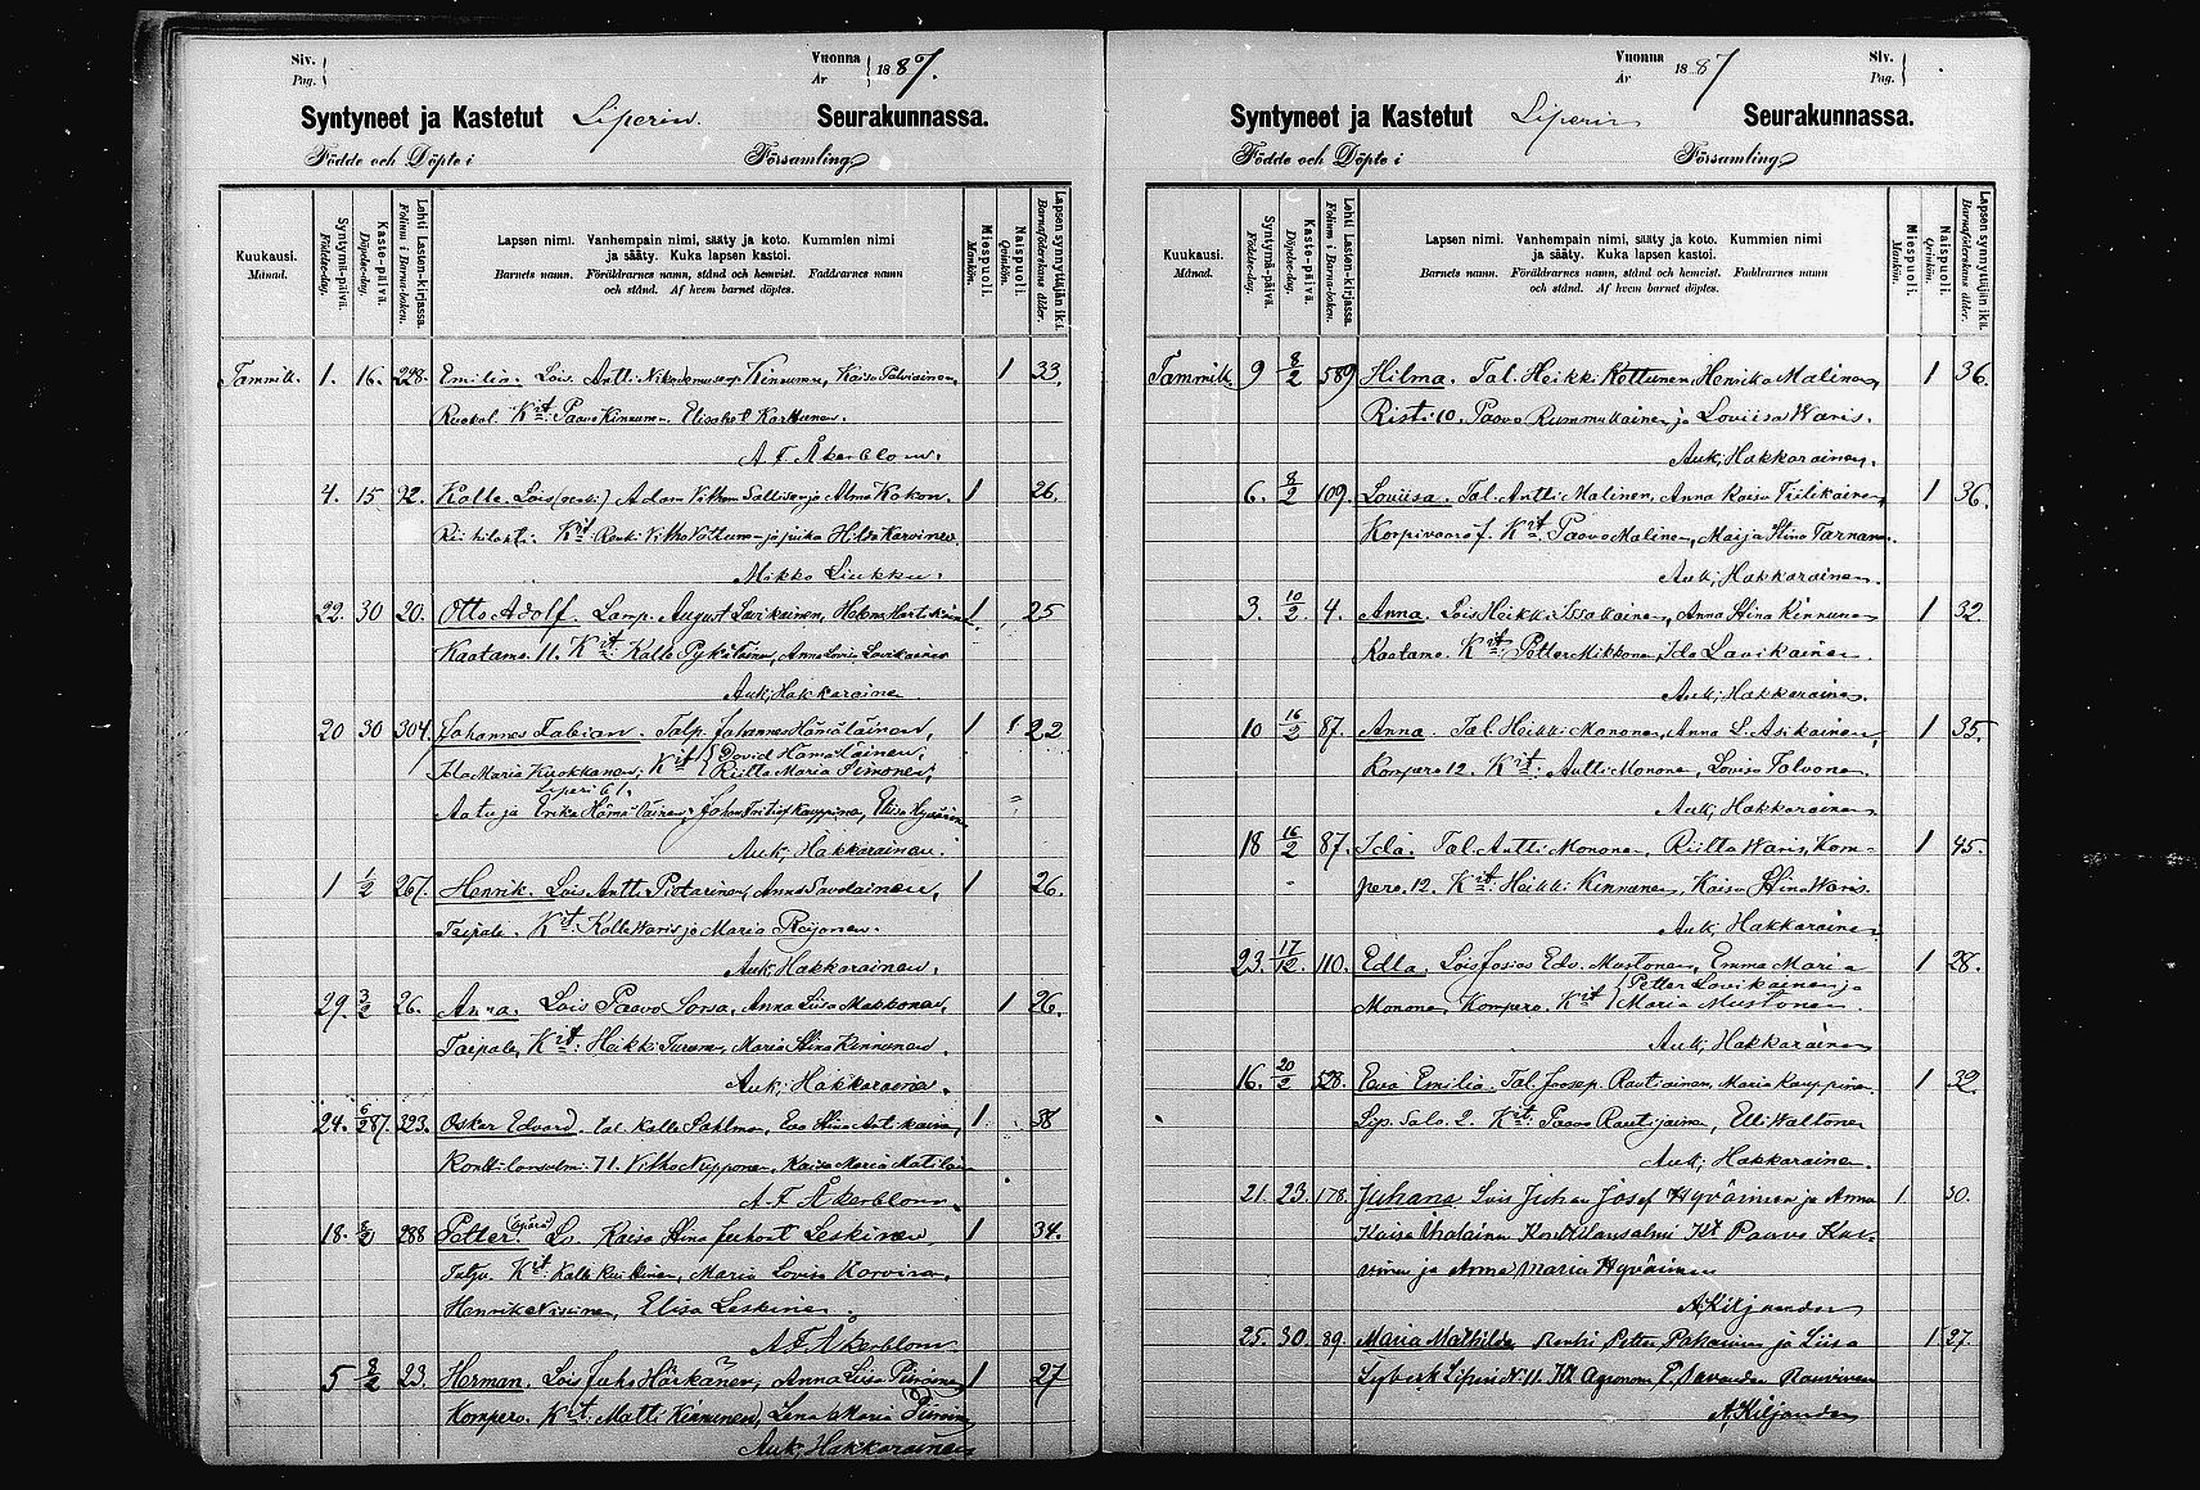 Siv.
Pag.
Vuonna
År
1887.
Syntyneet ja Kastetut Liperin Seurakunnassa.
Födde och Döpte i Församling
Kuukausi.
Månad.
Syntymä-päivä.
Födelse-dag.
Kaste-päivä.
Döpelse-dag.
Lehti Lasten-kirjassa.
Folium i Barna-boken.
Lapsen nimi. Vanhempain nimi, sääty ja koto. Kummien nimi
ja sääty. Kuka lapsen kastoi.
Barnets namn. Föräldrarnes namn, stånd och hemvist. Faddrarnes namn
och stånd. Af hvem barnet döptes.
Miespuoli.
Mankön.
Naispuoli.
Qvinkön.
Lapsen synnyttäjän ikä.
Barnaföderskans ålder.
Tammik. 1. 16. 228. Emilia. Lois. Antti Nikodemusenp. Kinnunen, Kaisa Palviainen, 1 33.
Ruokol. Kit: Paavo Kinnunen. Elisabet Karttunen.
A. F. Åkerblom.
4. 15 92. Kalle. Lois (renki) Adam Vilhem Sallisen ja Alma Kokon. 1 26.
Riihilahti. Kit: Renki Vilho Vottunen ja piika Hilda Karvinen.
Mikko Liukku.
22. 30 20. Otto Adolf. Lamp. August Lavikainen, Helena Hartikain 1 25
Kaatamo. 11. Kit: Kalle Pykäläinen, Anna Lovisa Lavikainen
Auk; Hakkarainen
20 30 304. Johannes Fabian. Talp. Johannes Hämäläinen, 1 1 22
Ida Maria Kuokkanen; Kit { David Hämäläinen, Riitta Maria Simonen,
Liperi 61.
Aatu ja Erika Hämäläinen; Johan Fritiof Kauppinen, Eliisa Hyvärinen
Auk; Hakkarainen.
1 1/2 267. Henrik. Lois Antti Pietarinen, Anna Savolainen, 1 26.
Taipale. Kit: Kalle Waris ja Maria Reijonen.
Auk; Hakkarainen.
29. 3/2 26. Anna. Lois Paavo Sorsa, Anna Liisa Makkonen, 1 26.
Taipale, Kit: Heikki Turunen, Maria Stina Kinnunen.
Auk; Hakkarainen.
24. 6/2 87. 323. Oskar Edvard. tal. Kalle Pahlman, Eva Stina Antikainen, 1. 38
Konttilansalmi 71. Vilho Nupponen, Kaisa Maria Matilain
A. F. Åkerblom.
18. 8/2 288 Petter. (äpärä) Lo. Kaisa Stina Juhont Leskinen 1 34.
Kit: Kalle Maria Lovisa Korvinen.
Henrik Niskinen, Elisa Leskinen.
A F Åkerblom.
5 8/2 23. Herman. Lois Juho Härkänen, Anna Liisa Piiroinen 1 27
Kompero. Kit: Matti Kinnunen, Lena Maria Piiroin
Auk; Hakkarainen
Vuonna
År
1887
Siv.
Pag.
Syntyneet ja Kastetut Liperin Seurakunnassa.
Födde och Döpte i Församling
Kuukausi.
Månad.
Syntymä-päivä.
Födelse-dag.
Kaste-päivä.
Döpelse-dag.
Lehti Lasten-kirjassa.
Folium i Barna-boken.
Lapsen nimi. Vanhempain nimi, sääty ja koto. Kummien nimi
ja sääty. Kuka lapsen kastoi.
Barnets namn. Föräldrarnes namn, stånd och hemvist. Faddrarnes namn
och stånd. Af hvem barnet döptes.
Miespuoli.
Mankön.
Naispuoli.
Qvinkön.
Lapsen synnyttäjän ikä.
Barnaföderskans ålder.
Tammik. 9 8/2 589 Hilma. Tal. Heikki Kettunen, Henrika Malinen, 1 36.
Risti 10. Paavo Rummukainen ja Loviisa Waris.
Auk; Hakkarainen.
6. 8/2 109. Loviisa. Tal. Antti Malinen, Anna Kaisa Tiilikainen, 1 36.
Korpivaara 7. Kit: Paavo Malinen, Maija Stina Tarnanen.
Auk; Hakkarainen.
3. 10/2. 4. Anna. Lois Heikki Issakainen, Anna Stina Kinnunen 1 32.
Kaatamo. Kit: Petter Mikkonen, Ida Lavikainen.
Auk; Hakkarainen.
10 16/2 87. Anna. Tal. Heikki Mononen, Anna L. Asikainen, 1 35.
Kompero 12. Kit: Antti Mononen, Lovisa Tolvonen.
Auk; Hakkarainen.
18 16/2 87. Ida. Tal. Antti Mononen, Riitta Waris, Kom- 1 45.
pero. 12. Kit: Heikki Kinnunen, Kaisa Stina Waris.
Auk; Hakkarainen
23. 17/12. 110. Edla. Lois Josias Edv. Mustonen, Emma Maria 1 28.
Mononen, Kompero. Kit { Petter Lavikainen ja Maria Mustonen.
Auk; Hakkarainen
16. 20/2 528. Eva Emilia. Tal. Joosep. Rautiainen, Maria Kauppinen 1 32.
Lip. Salo. 2. Kit: Paavo Rautijainen, Elli Waltonen
Auk; Hakkarainen.
21. 23. 178. Juhana Lois Juhan Josef Hyvärinen ja Anna 1. 30.
Kaisa Ihalainen Konttilansalmi Kt Paavo Kar-
vinen ja Anna Maria Hyvärinen
A, Kiljander
25. 30. 89. Maria Mathilda, Renki Petter Pakarinen ja Liisa 1 27.
Liperi N:11. Kt Agronom P.
A, Kiljander